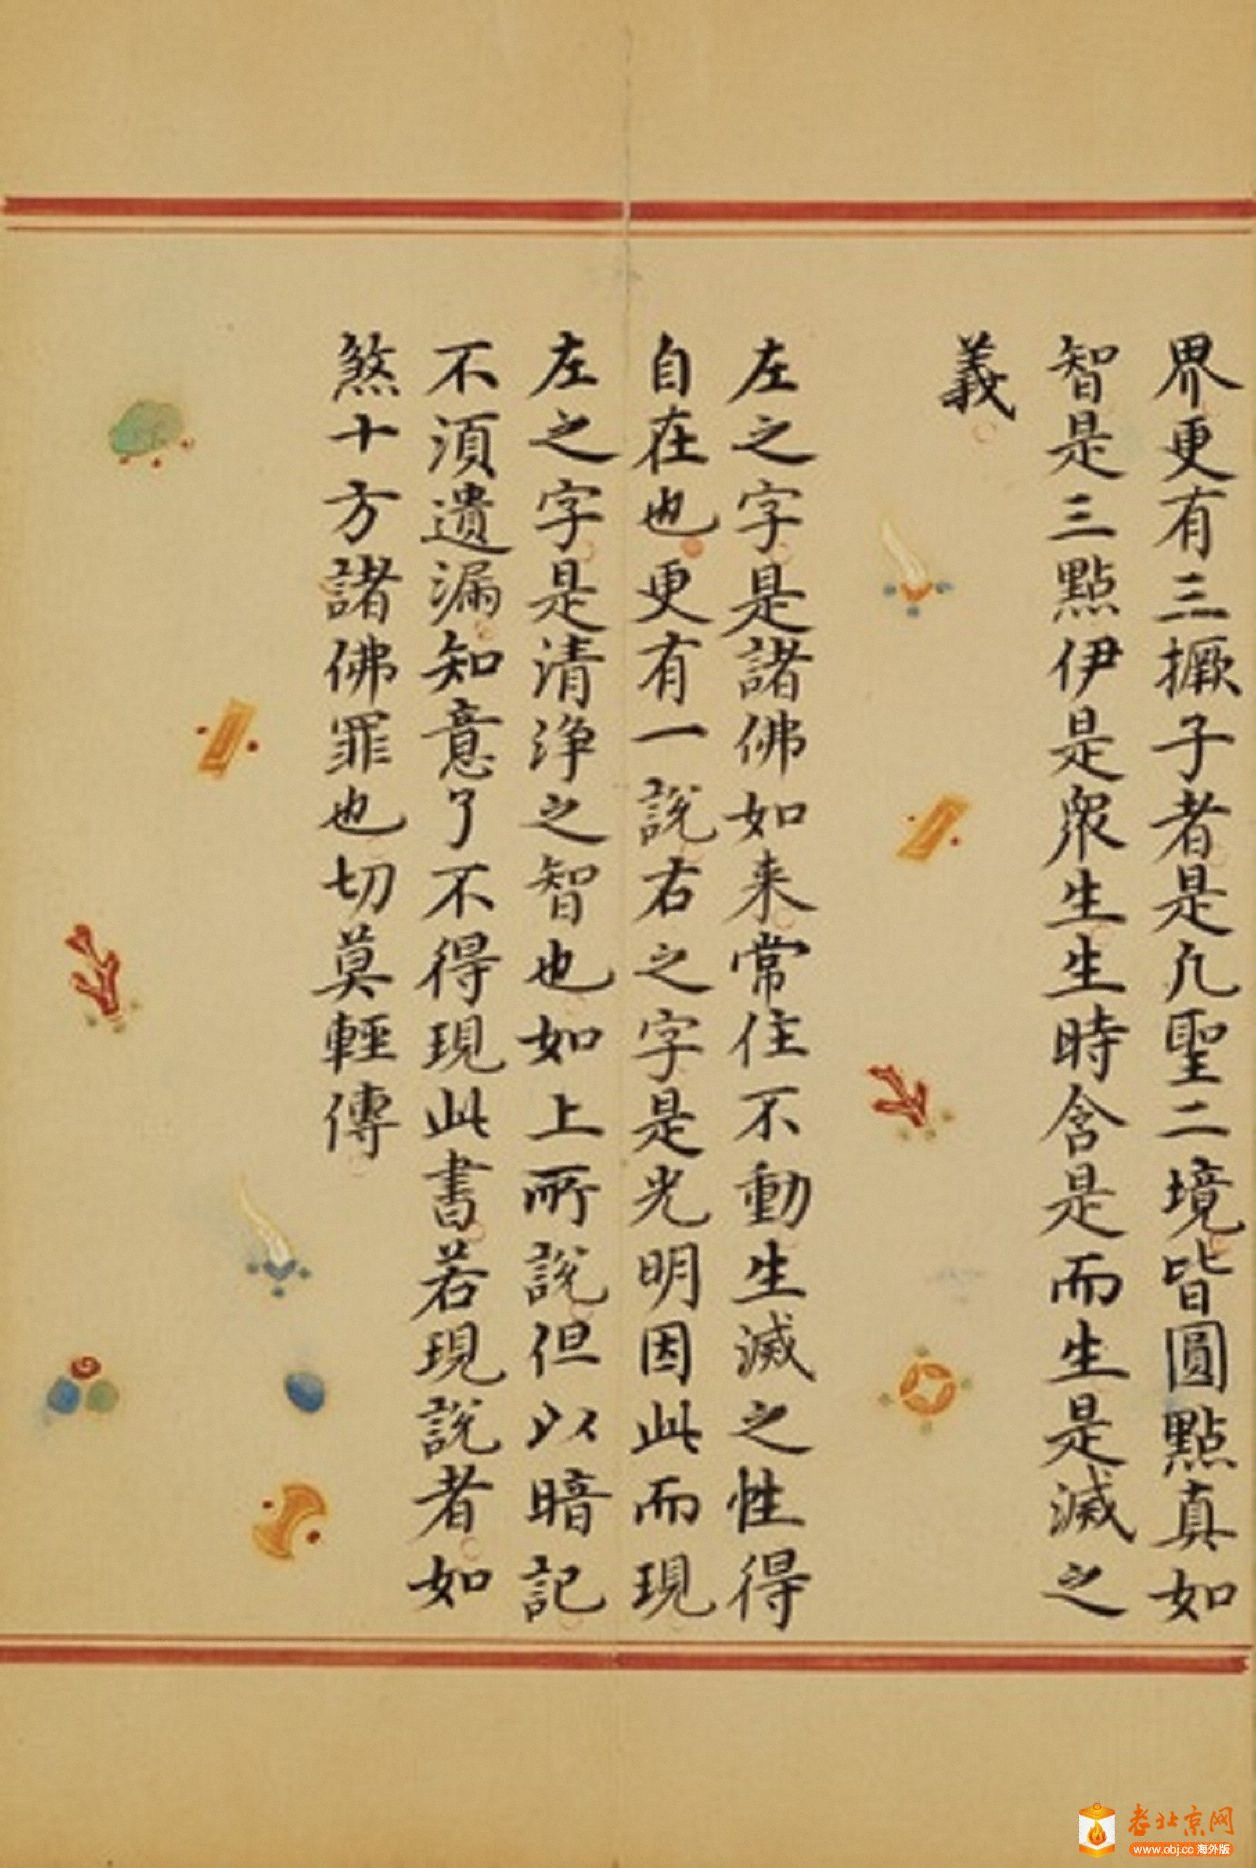 界更有三撅子者是凢聖二境皆圓點真如
智是三點伊是衆生生時含是而生是滅之
義
左之字是諸佛如来常住不動生滅之性得
自在也更有一説右之字是光明因此而現
左之字是清浄之智也如上所說但以暗記
不湏遺漏知意了不得現此書若現說者如
煞十方諸佛罪也切莫輕傳
老北京网
www.obj.cc 海外版